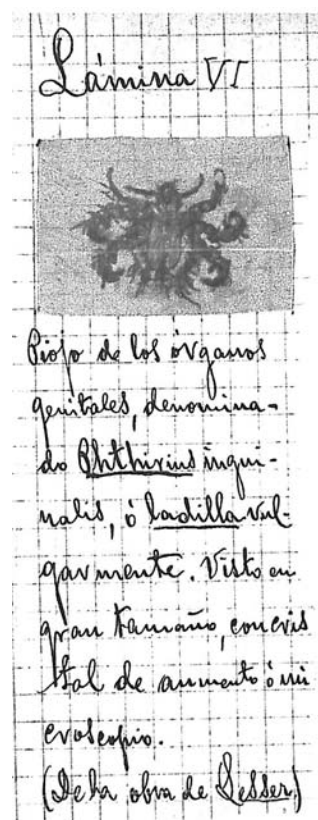 Lámina VI
Piojo de los órganos
genitales, denomina-
do Phthirius ingui-
nalis, ó ladilla vul-
garmente. Visto en
gran tamaño, con cris
tal de aumento ó mi
croscopio.
(De la obra de Lesser)